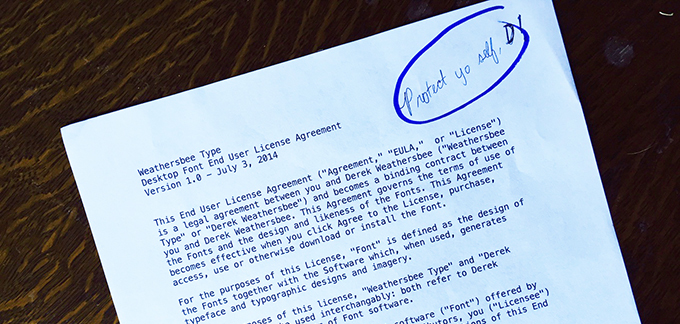 Protect yo self, DY
Weathersbee Type
Desktop Font End User License Agreement
Version 1.0 – July 3, 2014
This End User License Agreement ("Agreement," "EULA," or "License")
is a legal agreement between you and Derek Weathersbee ("Weathersbee
Type" or "Derek Weathersbee") and becomes a binding contract between
you and Derek Weathersbee. This Agreement governs the terms of use of
the Fonts and the design and likeness of the Fonts. This Agreement
becomes effective when you click Agree to the License, purchase,
access, use or otherwise download or install the Font.
For the purposes of this License, "Font" is defined as the design of
the Fonts together with the Software which, when used, generates
typeface and typographic designs and imagery.
poses of this license, "Weathersbee Type" and "Derek
be used interchangably: both refer to Derek
of Font software.
software ("Font") offered by
butors, you ("Licensee")
ions of this End